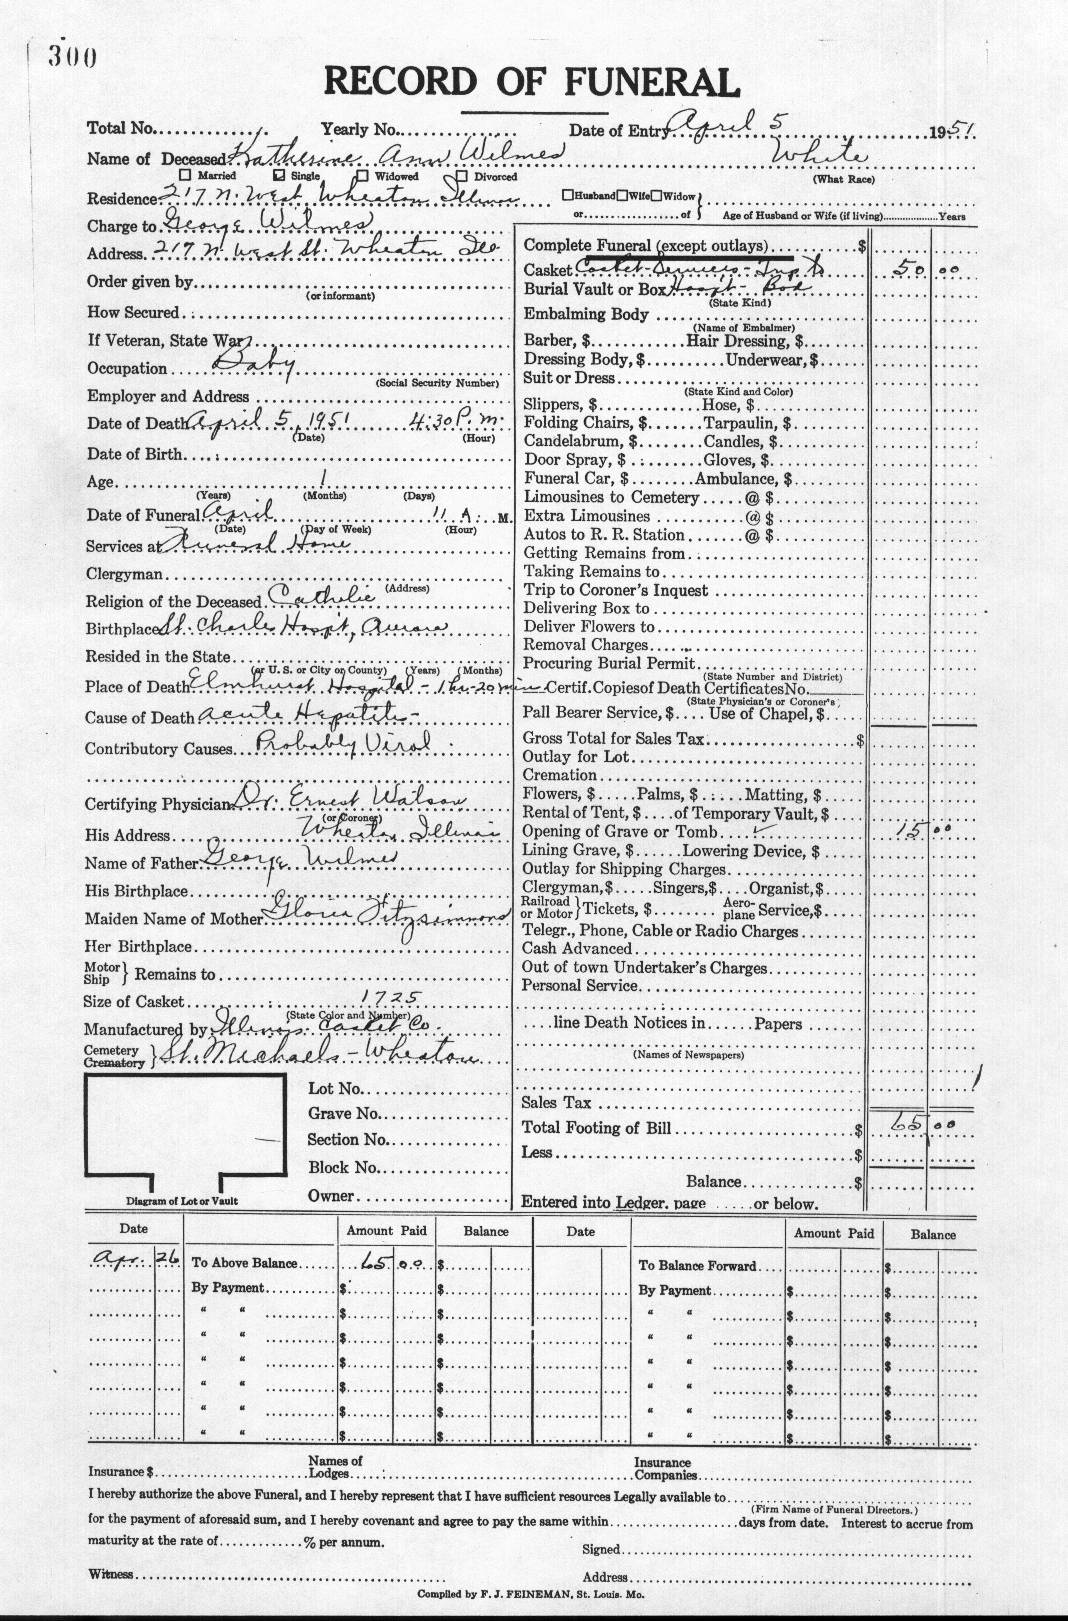 300
RECORD OF FUNERAL
Total No. Yearly No. Date of Entry April 5 1951
Name of Deceased Katherine Ann Wilmes White
Married Single Widowed Divorced (What Race)
Residence 217 N. West, Wheaton, Illinois Husband Wife Widow
or of Age of Husband or Wife (if living) Years
Charge to George Wilmes
Address 217 N. West St. Wheaton Ill
Order given by
(or informant)
How Secured
If Veteran, State War
Occupation Baby
(Social Security Number)
Employer and Address
Date of Death April 5, 1951 4:30 P. m.
(Date) (Hour)
Date of Birth
Age 1
(Years) (Months) (Days)
Date of Funeral April 11 A. M.
(Date) (Day of Week) (Hour)
Services at Funeral Home
Clergyman
(Address)
Religion of the Deceased Catholic
Birthplace St. Charles Hospt, Aurora
Resided in the State
(or U. S. or City or County) (Years) (Months)
Place of Death Elmhurst Hospital - 1 hr-20 min
Cause of Death Acute Hepatitis-
Contributory Causes Probably Viral
Certifying Physician Dr. Ernest Watson
(or Coroner)
His Address Wheaton, Illinois
Name of Father George Wilmes
His Birthplace
Maiden Name of Mother Gloria Fitzsimmons
Her Birthplace
Motor
Ship } Remains to
Size of Casket 1725
(State Color and Number)
Manufactured by Illinois Casket Co.
Cemetery
Crematory } St. Michaels - Wheaton
Lot No.
Grave No.
Section No.
Block No.
Owner
Diagram of Lot or Vault
Complete Funeral (except outlays) $
Casket Casket-Services-Trip to 50 00
Burial Vault or Box Hospt- Box
(State Kind)
Embalming Body
(Name of Embalmer)
Barber, $ Hair Dressing, $
Dressing Body, $ Underwear, $
Suit or Dress
(State Kind and Color)
Slippers, $ Hose, $
Folding Chairs, $ Tarpaulin, $
Candelabrum, $ Candles, $
Door Spray, $ Gloves, $
Funeral Car, $ Ambulance, $
Limousines to Cemetery @ $
Extra Limousines @ $
Autos to R. R. Station @ $
Getting Remains from
Taking Remains to
Trip to Coroner's Inquest
Delivering Box to
Deliver Flowers to
Removal Charges
Procuring Burial Permit
(State Number and District)
Certif. Copies of Death Certificates No.
(State Physician's or Coroner's)
Pall Bearer Service, $ Use of Chapel, $
Gross Total for Sales Tax $
Outlay for Lot
Cremation
Flowers, $ Palms, $ Matting, $
Rental of Tent, $ of Temporary Vault, $
Opening of Grave or Tomb ✓ 15 00
Lining Grave, $ Lowering Device, $
Outlay for Shipping Charges
Clergyman, $ Singers, $ Organist, $
Railroad
or Motor } Tickets, $ Aero-
plane Service, $
Telegr., Phone, Cable or Radio Charges
Cash Advanced
Out of town Undertaker's Charges
Personal Service
line Death Notices in Papers
(Names of Newspapers)
Sales Tax
Total Footing of Bill $ 65 00
Less $
Balance $
Entered into Ledger, page or below.
Date Amount Paid Balance Date Amount Paid Balance
Apr. 26 To Above Balance 65 00 $ To Balance Forward $
By Payment $ $ By Payment $ $
“ “ $ $ “ “ $ $
“ “ $ $ “ “ $ $
“ “ $ $ “ “ $ $
“ “ $ $ “ “ $ $
“ “ $ $ “ “ $ $
“ “ $ $ “ “ $ $
Insurance $ Names of
Lodges Insurance
Companies
I hereby authorize the above Funeral, and I hereby represent that I have sufficient resources Legally available to
(Firm Name of Funeral Directors.)
for the payment of aforesaid sum, and I hereby covenant and agree to pay the same within days from date. Interest to accrue from
maturity at the rate of % per annum.
Signed
Witness Address
Compiled by F. J. FEINEMAN, St. Louis. Mo.